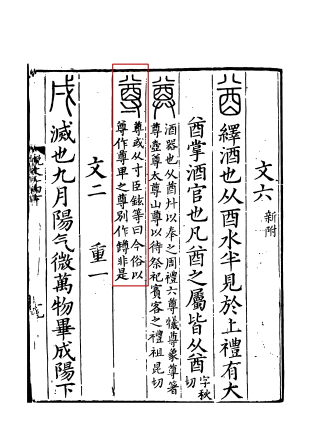 文六 新附
酋 繹酒也从酉水半見於上禮有大
酋掌酒官也凡酋之屬皆从酋 字秋切
𢍜 酒器也从酋廾以奉之周禮六尊犧尊象尊著
尊壺尊太尊山尊以待祭祀賓客之禮祖昆切
尊 尊或从寸臣鉉等曰今俗以
尊作尊卑之尊別作罇非是
文二 重一
戌 滅也九月陽气微萬物畢成陽下